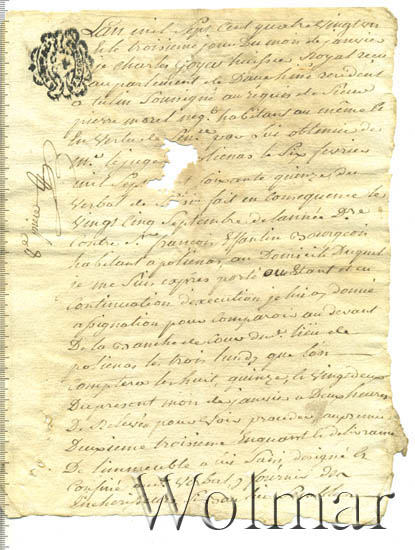 L'an mil sept cent quatre vingt un
et le troisieme jour du mois de janvier
je Charles Goyas huissier Royal
au parlement de Dauphiné resident
a tulin soussigné au requis de sieur
pierre morel neg.t habitant au même lieu
En vertu de par lui obtenue de
M.r le juge polienas le six fevrier
mil sept soixante quinze
verbal de fait en consequence le
vingt cinq septembre de l'année
contre S.r françois bourgeois
habitant a polienas au Domicile Duquel
je me suis expres porté ou Etant et en
continuation d'execution je lui ay donné
assignation pour comparoir au devant
De la banche de cour dud. lieu de
polienas les trois lundy que l'on
comptera les huit, quinze, et vingt deux
Du present mois de janvier a Deux heures
De relevée pour voir proceder au premier
Deuxieme troisieme Enquant et delivrance
De l'immeuble a lui saisi designé et
confiné au verbal, fournir des
Encherisseurs si bon lui semble
Wolmar